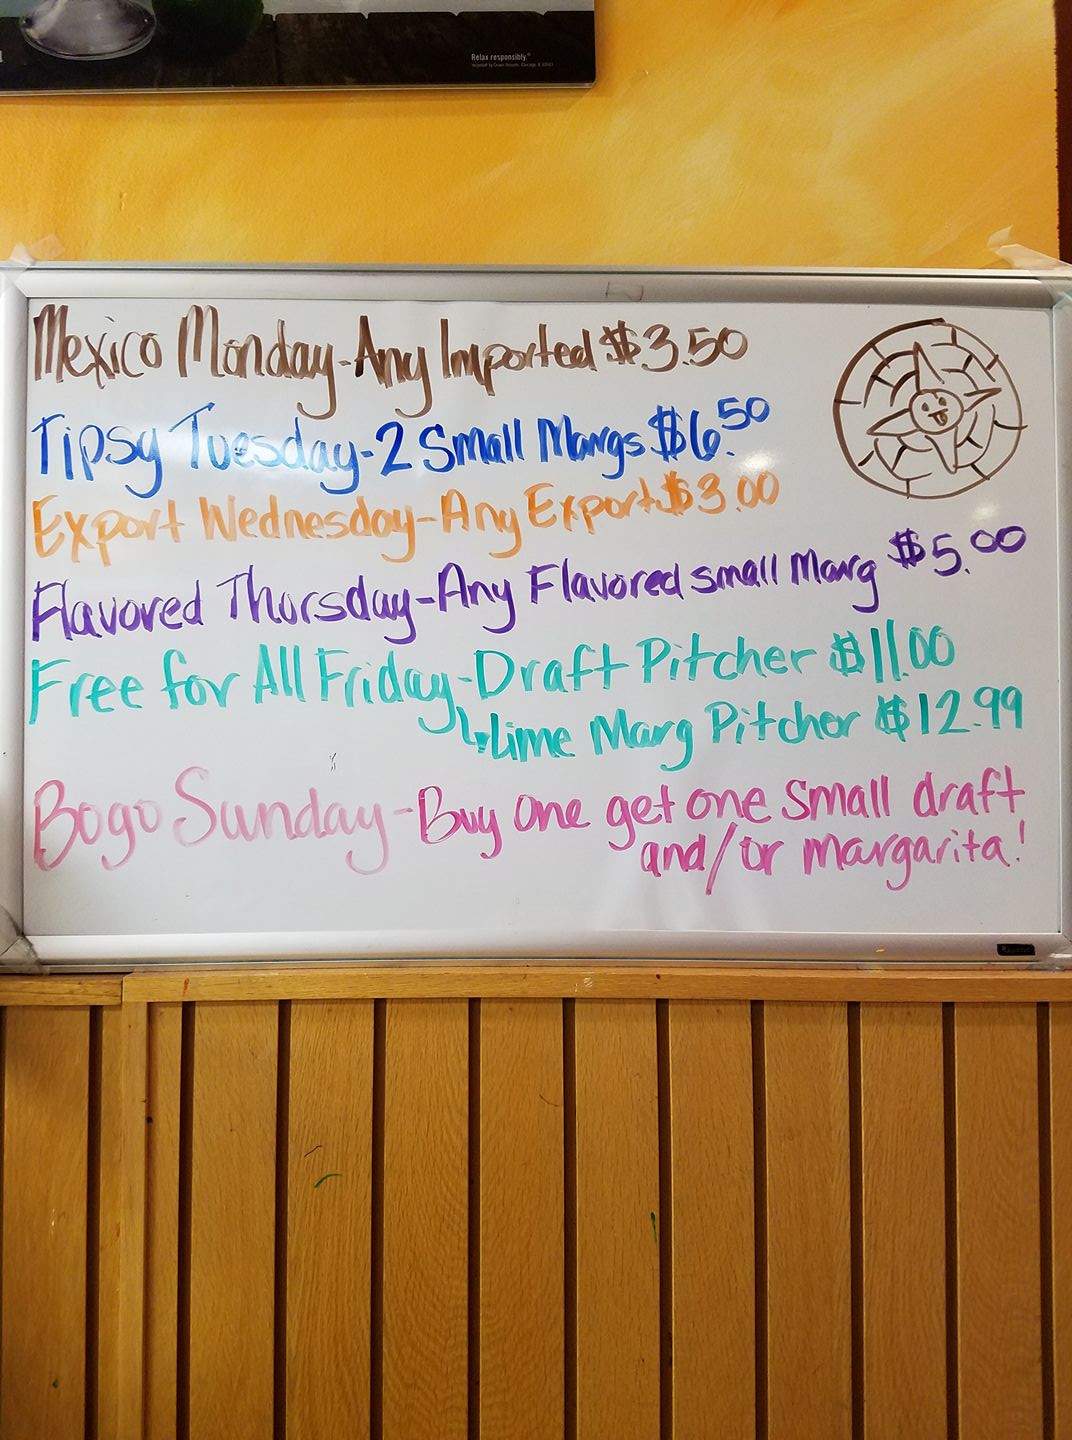 Relax responsibly.®
Mexico Monday-Any Imported $3.50
Tipsy Tuesday-2 Small Margs $6.50
Export Wednesday-Any Export $3.00
Flavored Thursday-Any Flavored small Marg $5.00
Free for All Friday-Draft Pitcher $11.00
lime Marg Pitcher $12.99
Bogo Sunday-Buy one get one small draft
and/or margarita!